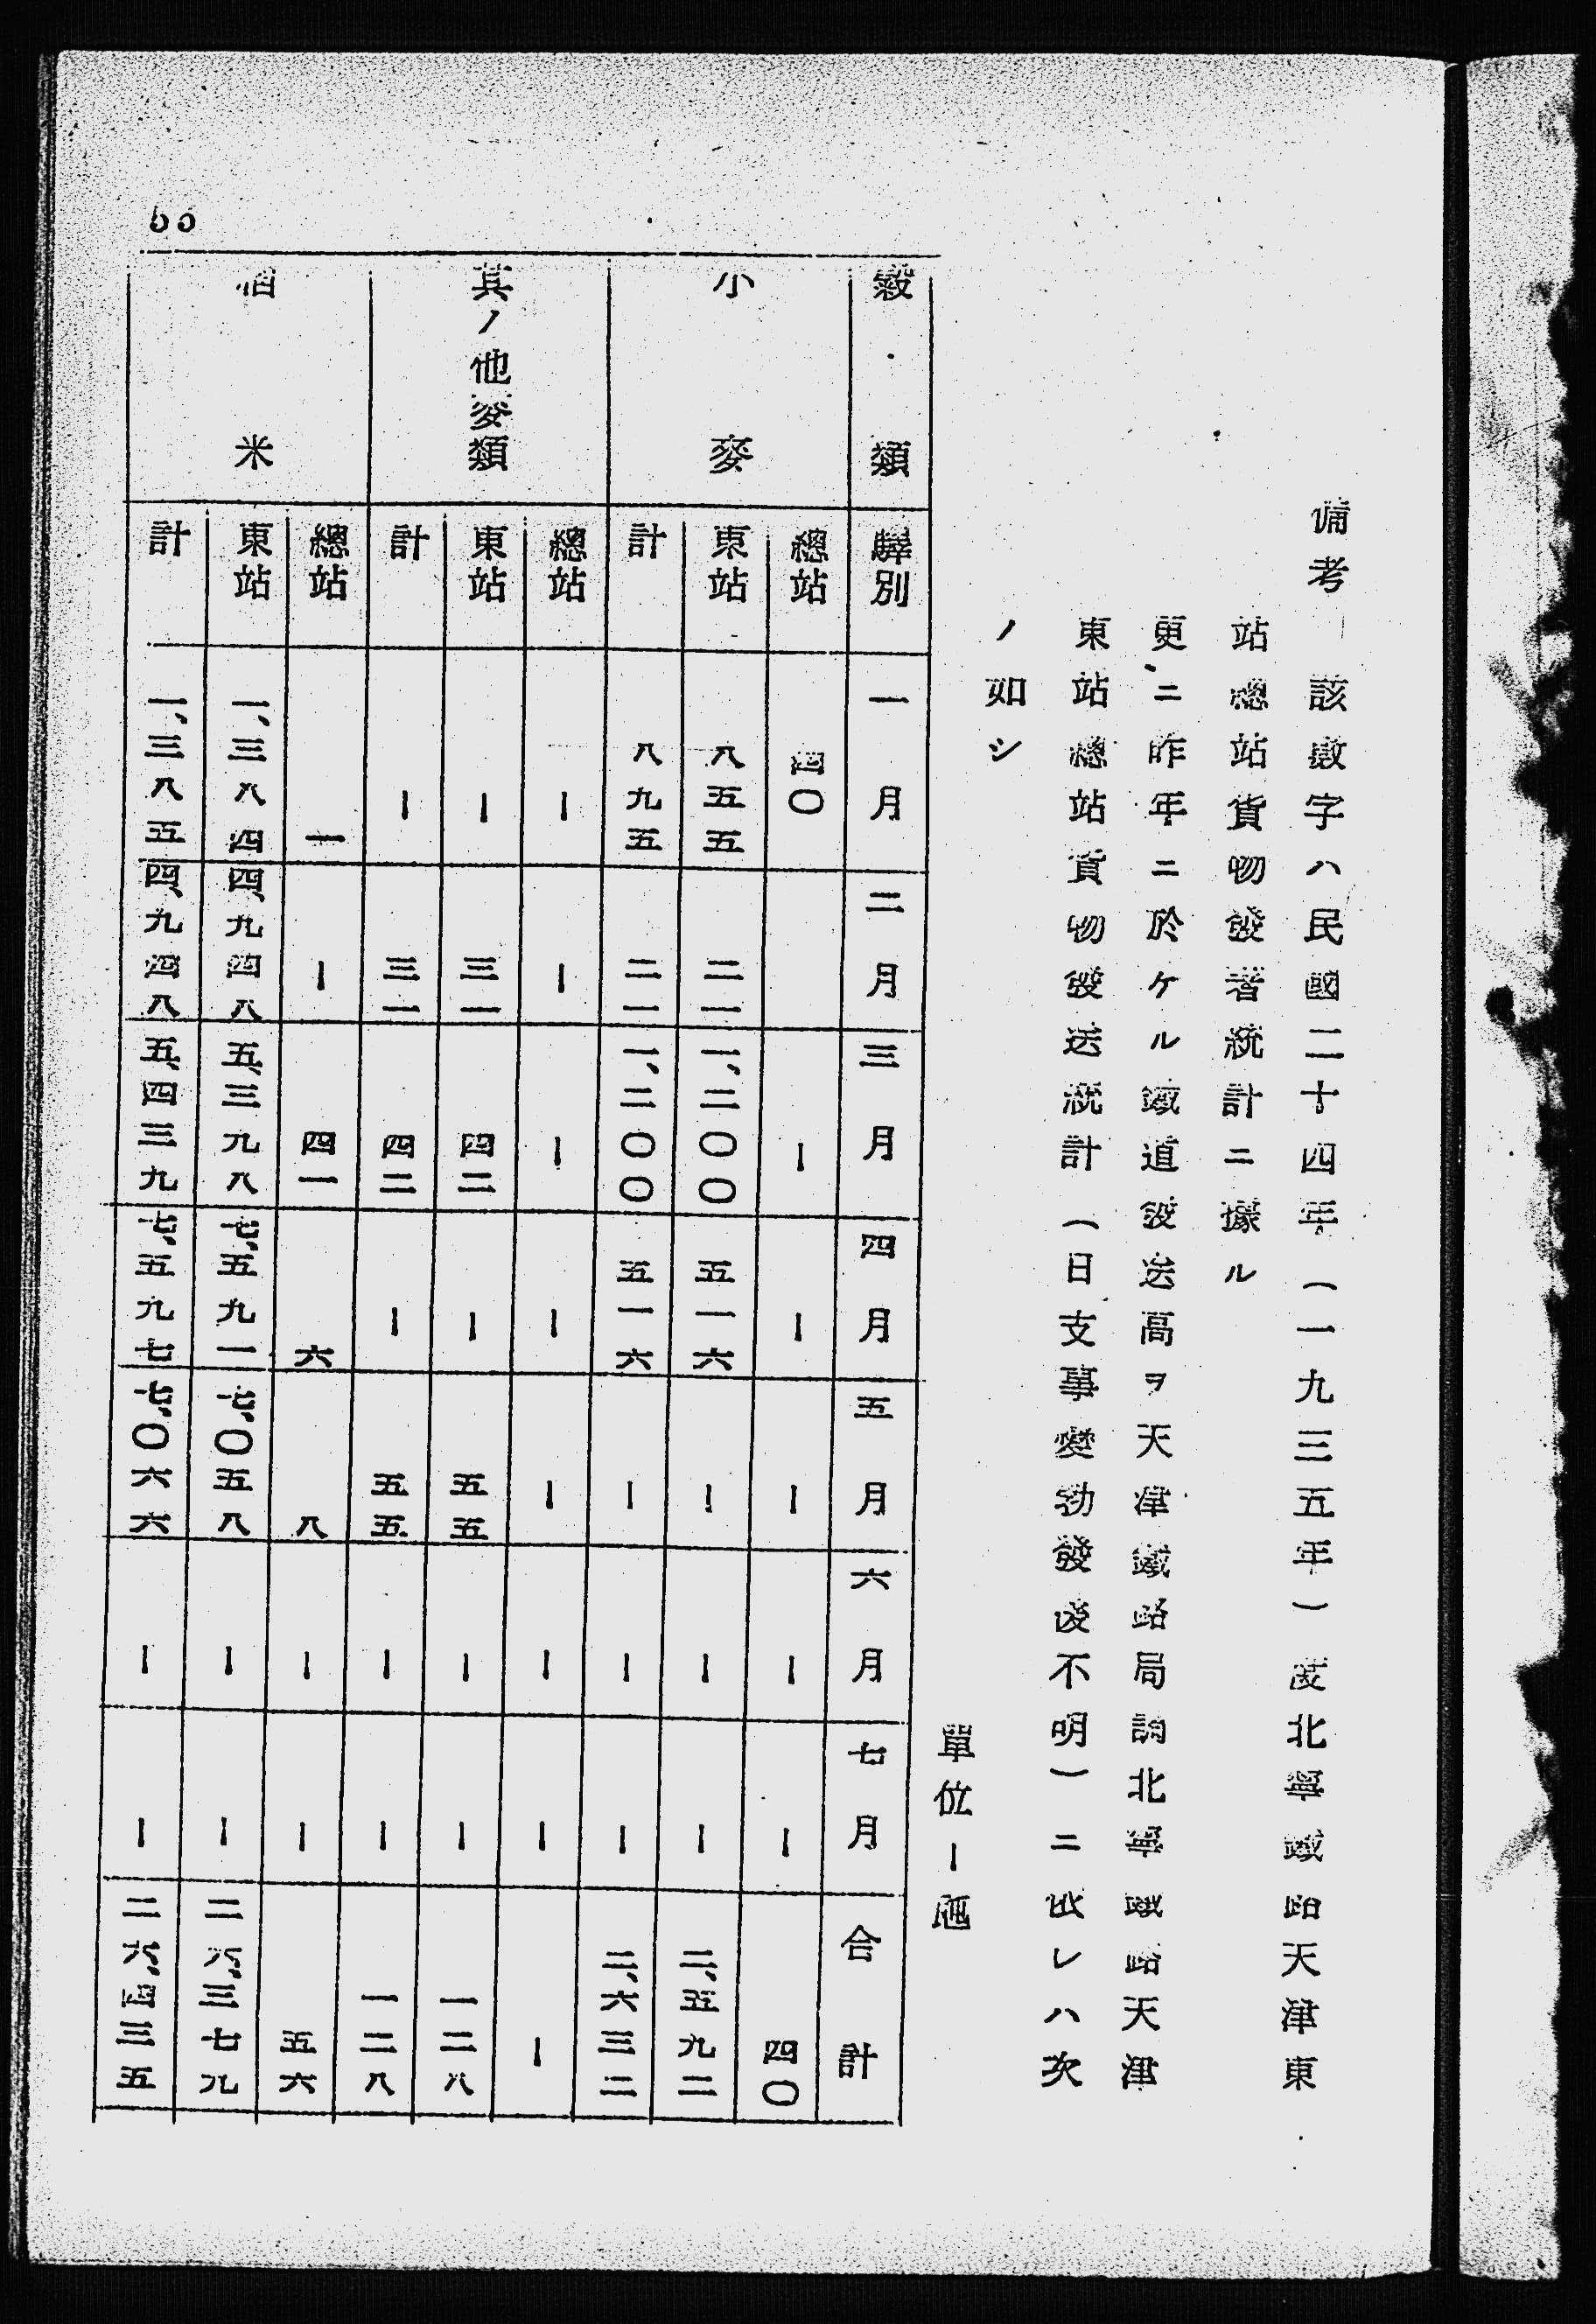 備考 該數字ハ民國二十四年(一九三五年)度北寧鐵路天津東
站總站貨物發着統計ニ據ル
更ニ昨年ニ於ケル鐵道發送高ヲ天津鐵路局調北寧鐵路天津
東站總站貨物發送統計(日支事變勃發後不明)ニ依レハ次
ノ如シ
單位ー瓲
穀類 驛別 一月 二月 三月 四月 五月 六月 七月 合計
小麥 總站 四〇 ー ー ー ー ー 四〇
東站 八五五 二一 一、二〇〇 五一六 ー ー ー 二、五九二
計 八九五 二一 一、二〇〇 五一六 ー ー ー 二、六三二
其ノ他麥類 總站 ー ー ー ー ー ー ー ー
東站 ー 三一 四二 ー 五五 ー ー 一二八
計 ー 三一 四二 ー 五五 ー ー 一二八
米 總站 一 ー 四一 六 八 ー ー 五六
東站 一、三八四 四、九四八 五、三九八 七、五九一 七、〇五八 ー ー 二六、三七九
計 一、三八五 四、九四八 五、四三九 七、五九七 七、〇六六 ー ー 二六、四三五